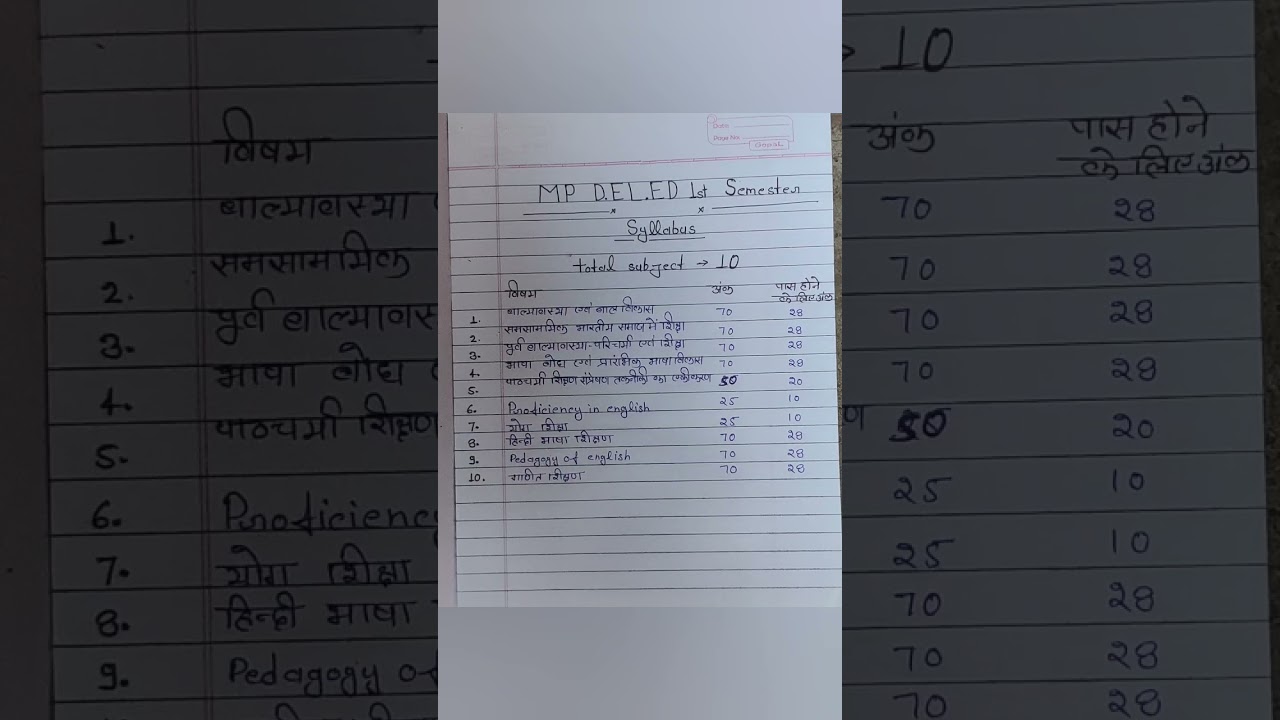 Date
Page No.
GOODLUCK
MP D.EL.ED 1st Semester
Syllabus
total subject → 10
विषय अंक पास होने के लिए अंक
1. बाल्यावस्था एवं बाल विकास 70 28
2. समसामयिक भारतीय समाज में शिक्षा 70 28
3. पूर्व बाल्यावस्था-परिचर्या एवं शिक्षा 70 28
4. भाषा बोध एवं प्रारंभिक भाषा विकास 70 28
5. पाठ्यचर्या शिक्षण संप्रेषण तकनीकी का एकीकरण 50 20
6. Proficiency in english 25 10
7. योग शिक्षा 25 10
8. हिन्दी भाषा शिक्षण 70 28
9. Pedagogy of english 70 28
10. गणित शिक्षण 70 28